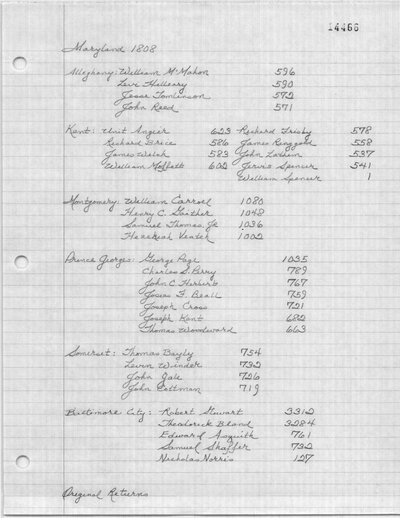 14466
Maryland 1808
Alleghany: William McMahon 596
Levi Hilleary 590
Jesse Tomlinson 572
John Reed 571
Kent: Unit Angier 623 Richard Frisby 578
Richard Brice 586 James Ringgold 558
James Welsh 583 John Latham 537
William Moffett 602 Jervis Spencer 541
William Spencer 1
Montgomery: William Carroll 1080
Henry C. Gaither 1048
Samuel Thomas, Jr. 1036
Hezekiah Veatch 1002
Prince Georges: George Page 1035
Charles S. Perry 789
John C. Herbert 767
Josias F. Beall 759
Joseph Cross 721
Joseph Kent 682
Thomas Woodward 663
Somerset: Thomas Bayly 754
Levin Winder 732
John Gale 726
John Cottman 719
Baltimore City: Robert Stewart 3312
Theodorick Bland 3284
Edward Aisquith 761
Samuel Shaffer 732
Nicholas Norris 127
Original Returns